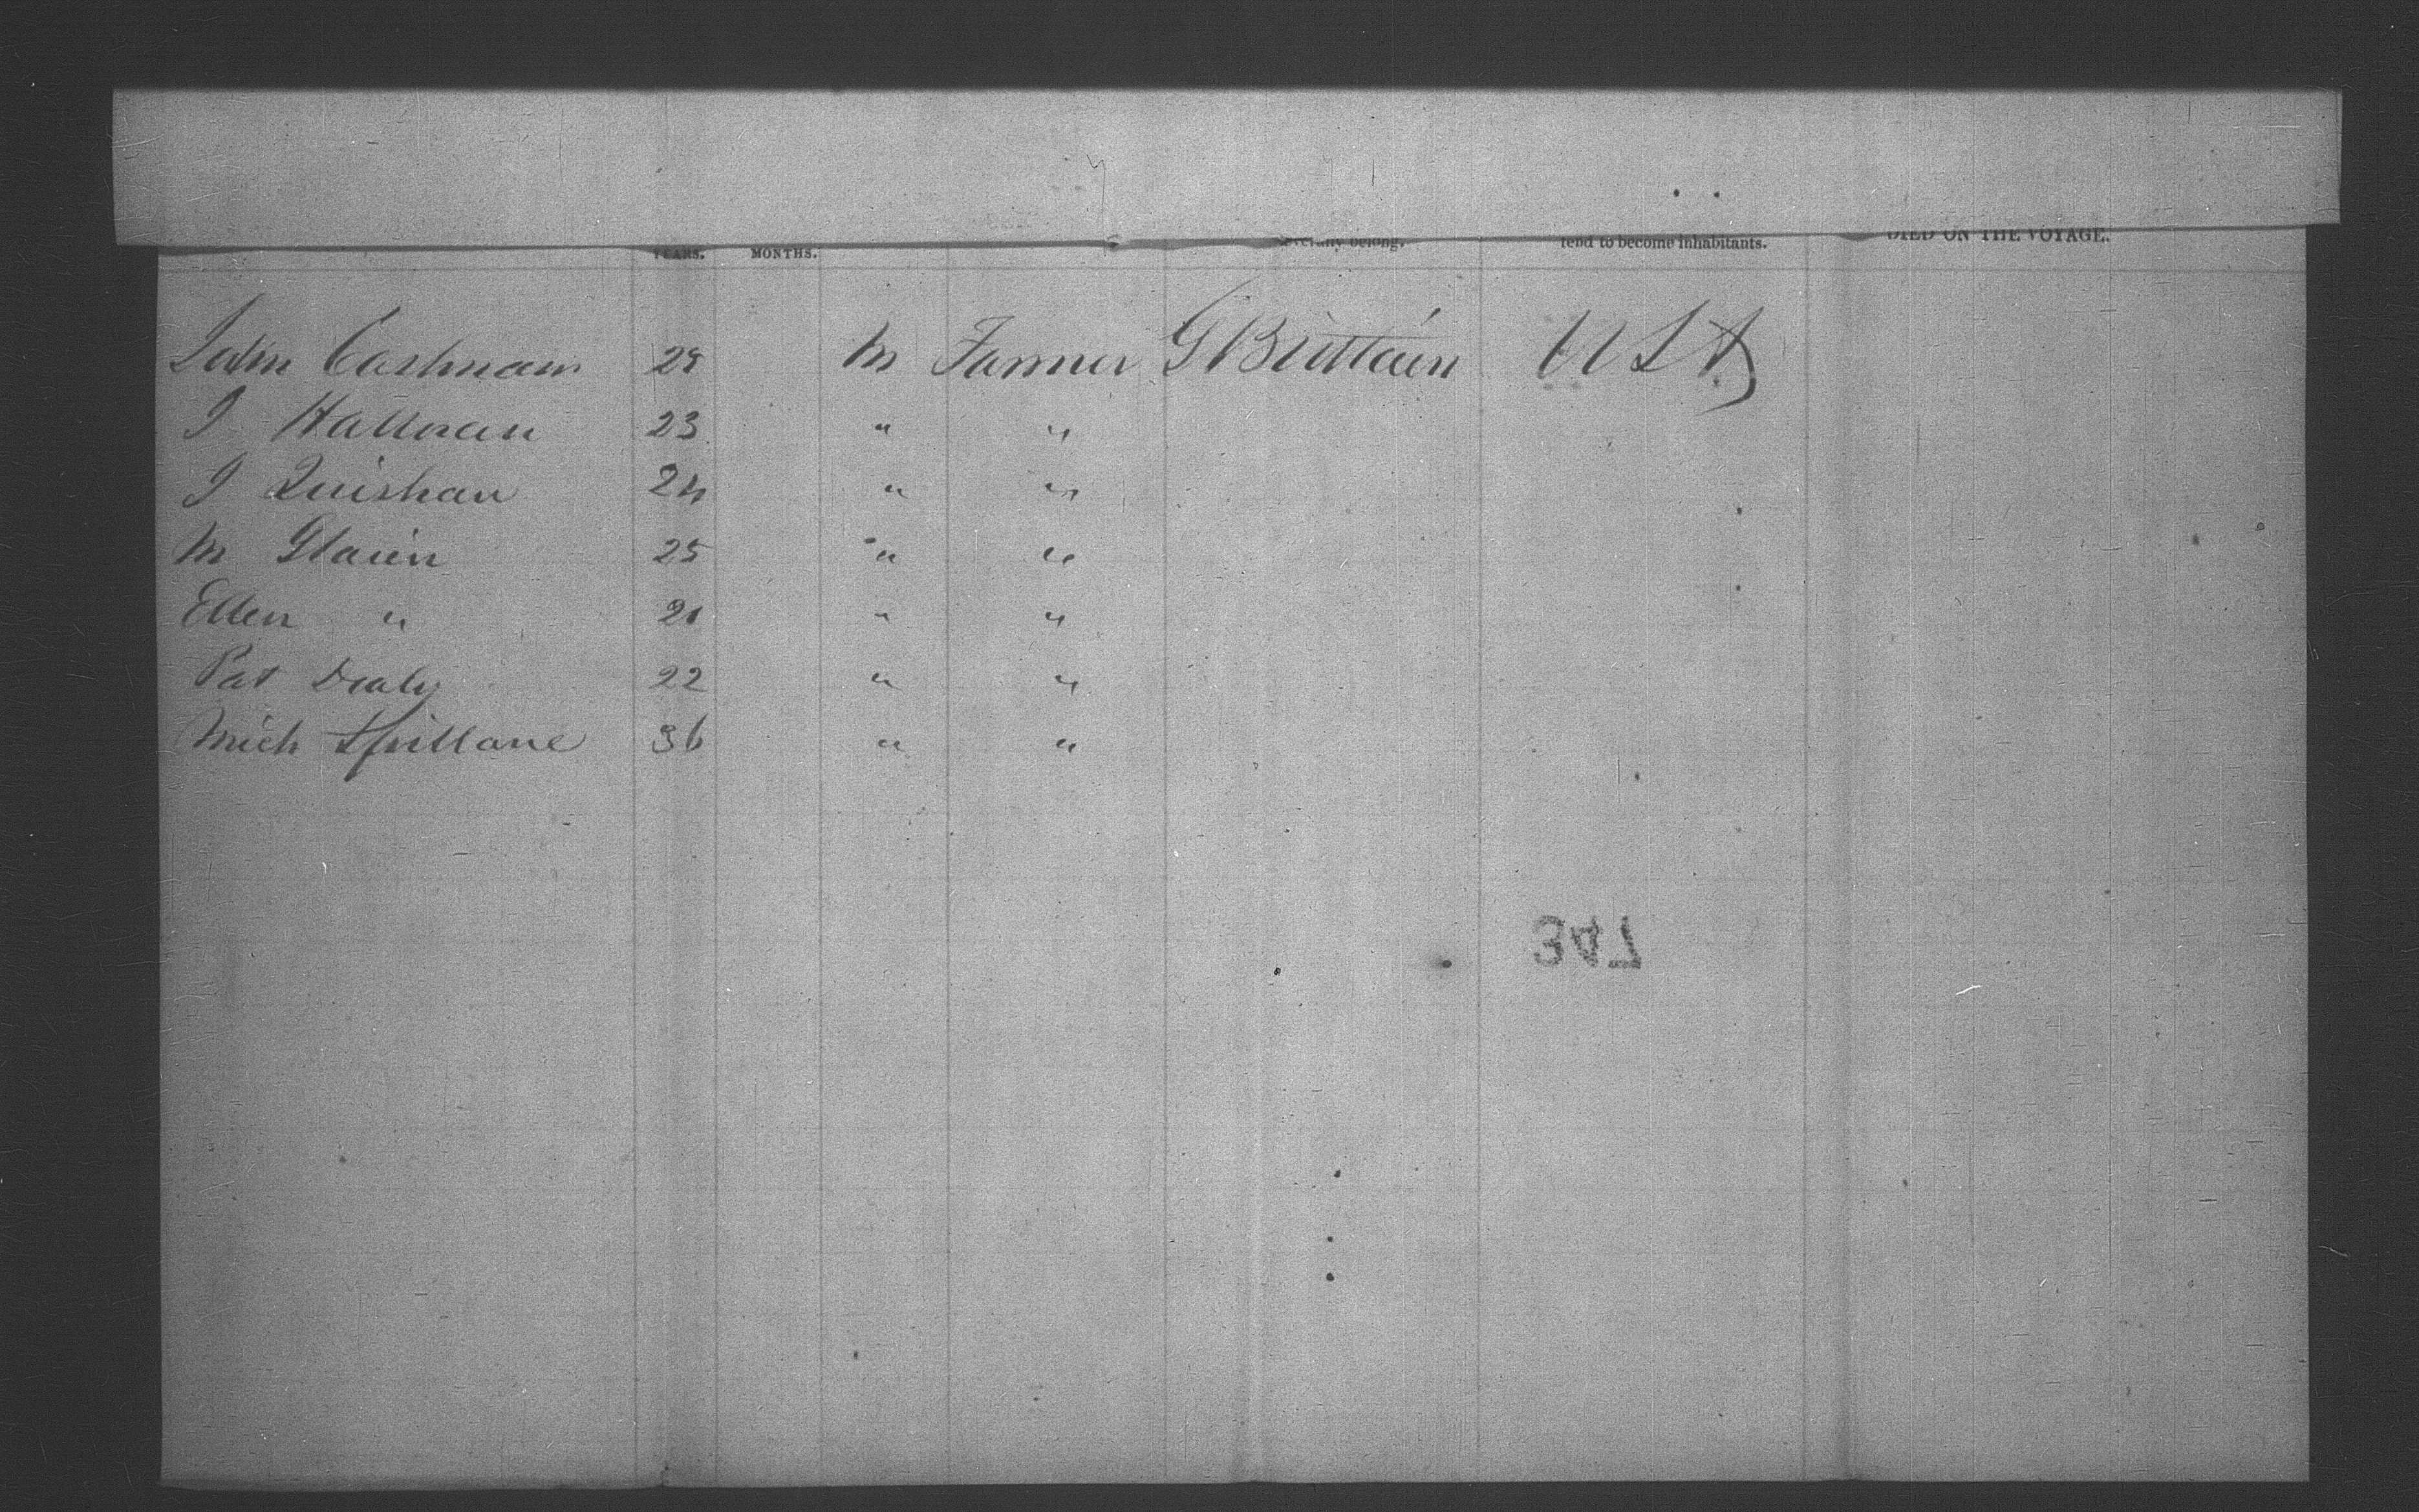 YEARS. MONTHS. severally belong. tend to become inhabitants. DIED ON THE VOYAGE.
John Cashman 29 M Farmer G Brittain USA
J Halloran 23 " "
J Quishan 24 " "
M Glavin 25 " "
Ellen " 20 " "
Pat Dealy 22 " "
Mich Spillane 36 " "
347